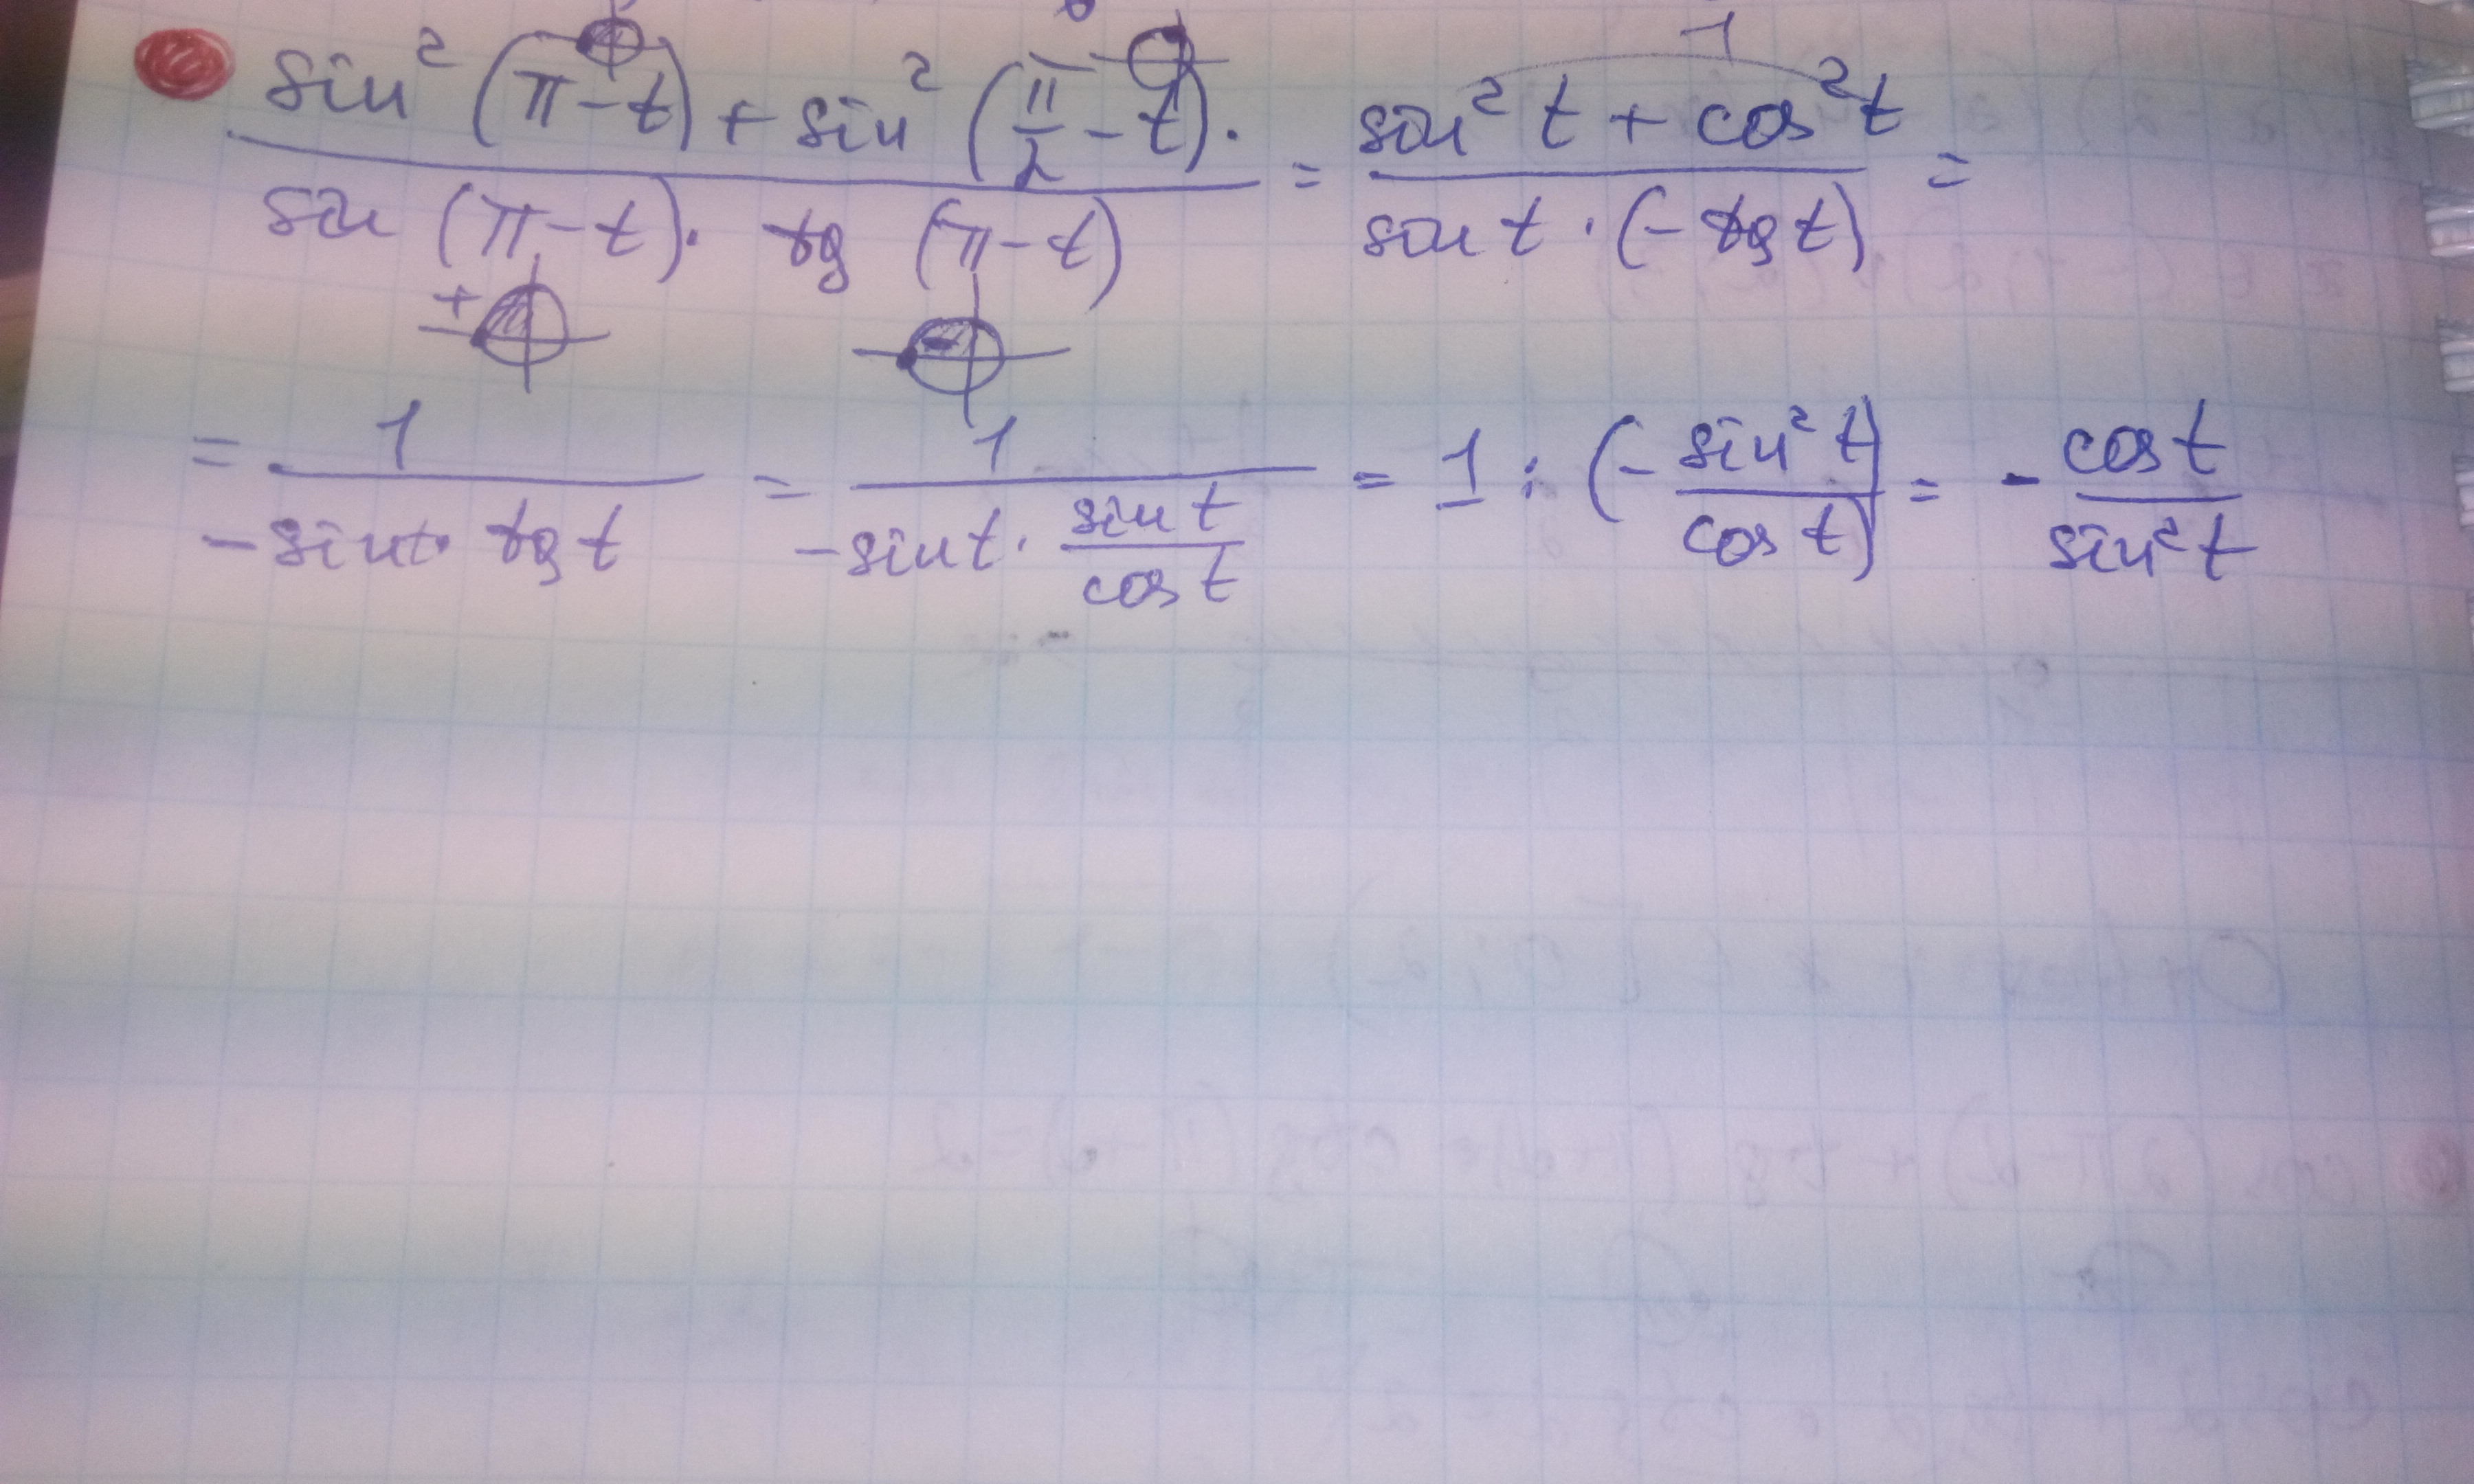 1
sin² (π - t) + sin² (π/2 - t) · / sin (π - t) · tg (π - t) = sin² t + cos² t / sin t · (- tg t) =
+ -
= 1 / - sin t · tg t = 1 / - sin t · sin t / cos t = 1 : (- sin² t / cos t) = - cos t / sin² t